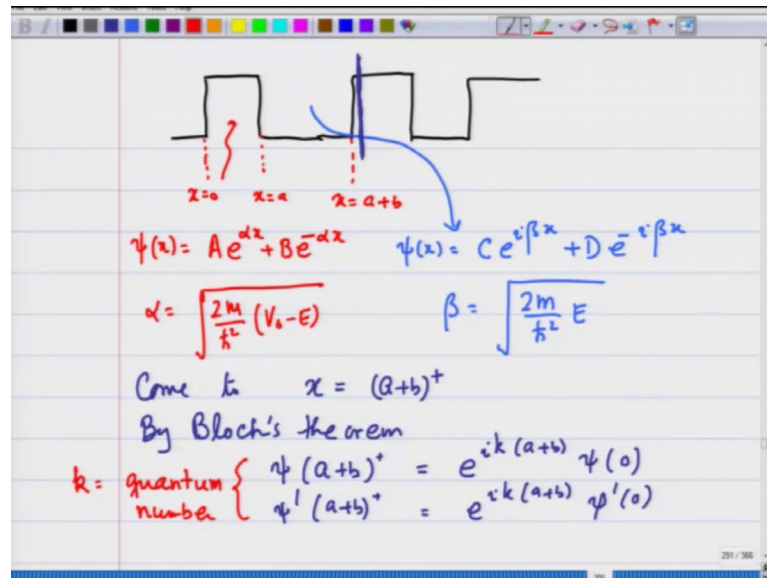 x=0 x=a x=a+b
ψ(x)= Ae^{αx}+Be^{-αx} ψ(x)= Ce^{iβx}+De^{-iβx}
α= √(2m/ħ² (V₀-E)) β= √(2m/ħ² E)
Come to x = (a+b)⁺
By Bloch's theorem
k= quantum number { ψ(a+b)⁺ = e^{ik(a+b)} ψ(0)
ψ'(a+b)⁺ = e^{ik(a+b)} ψ'(0)
291 / 366